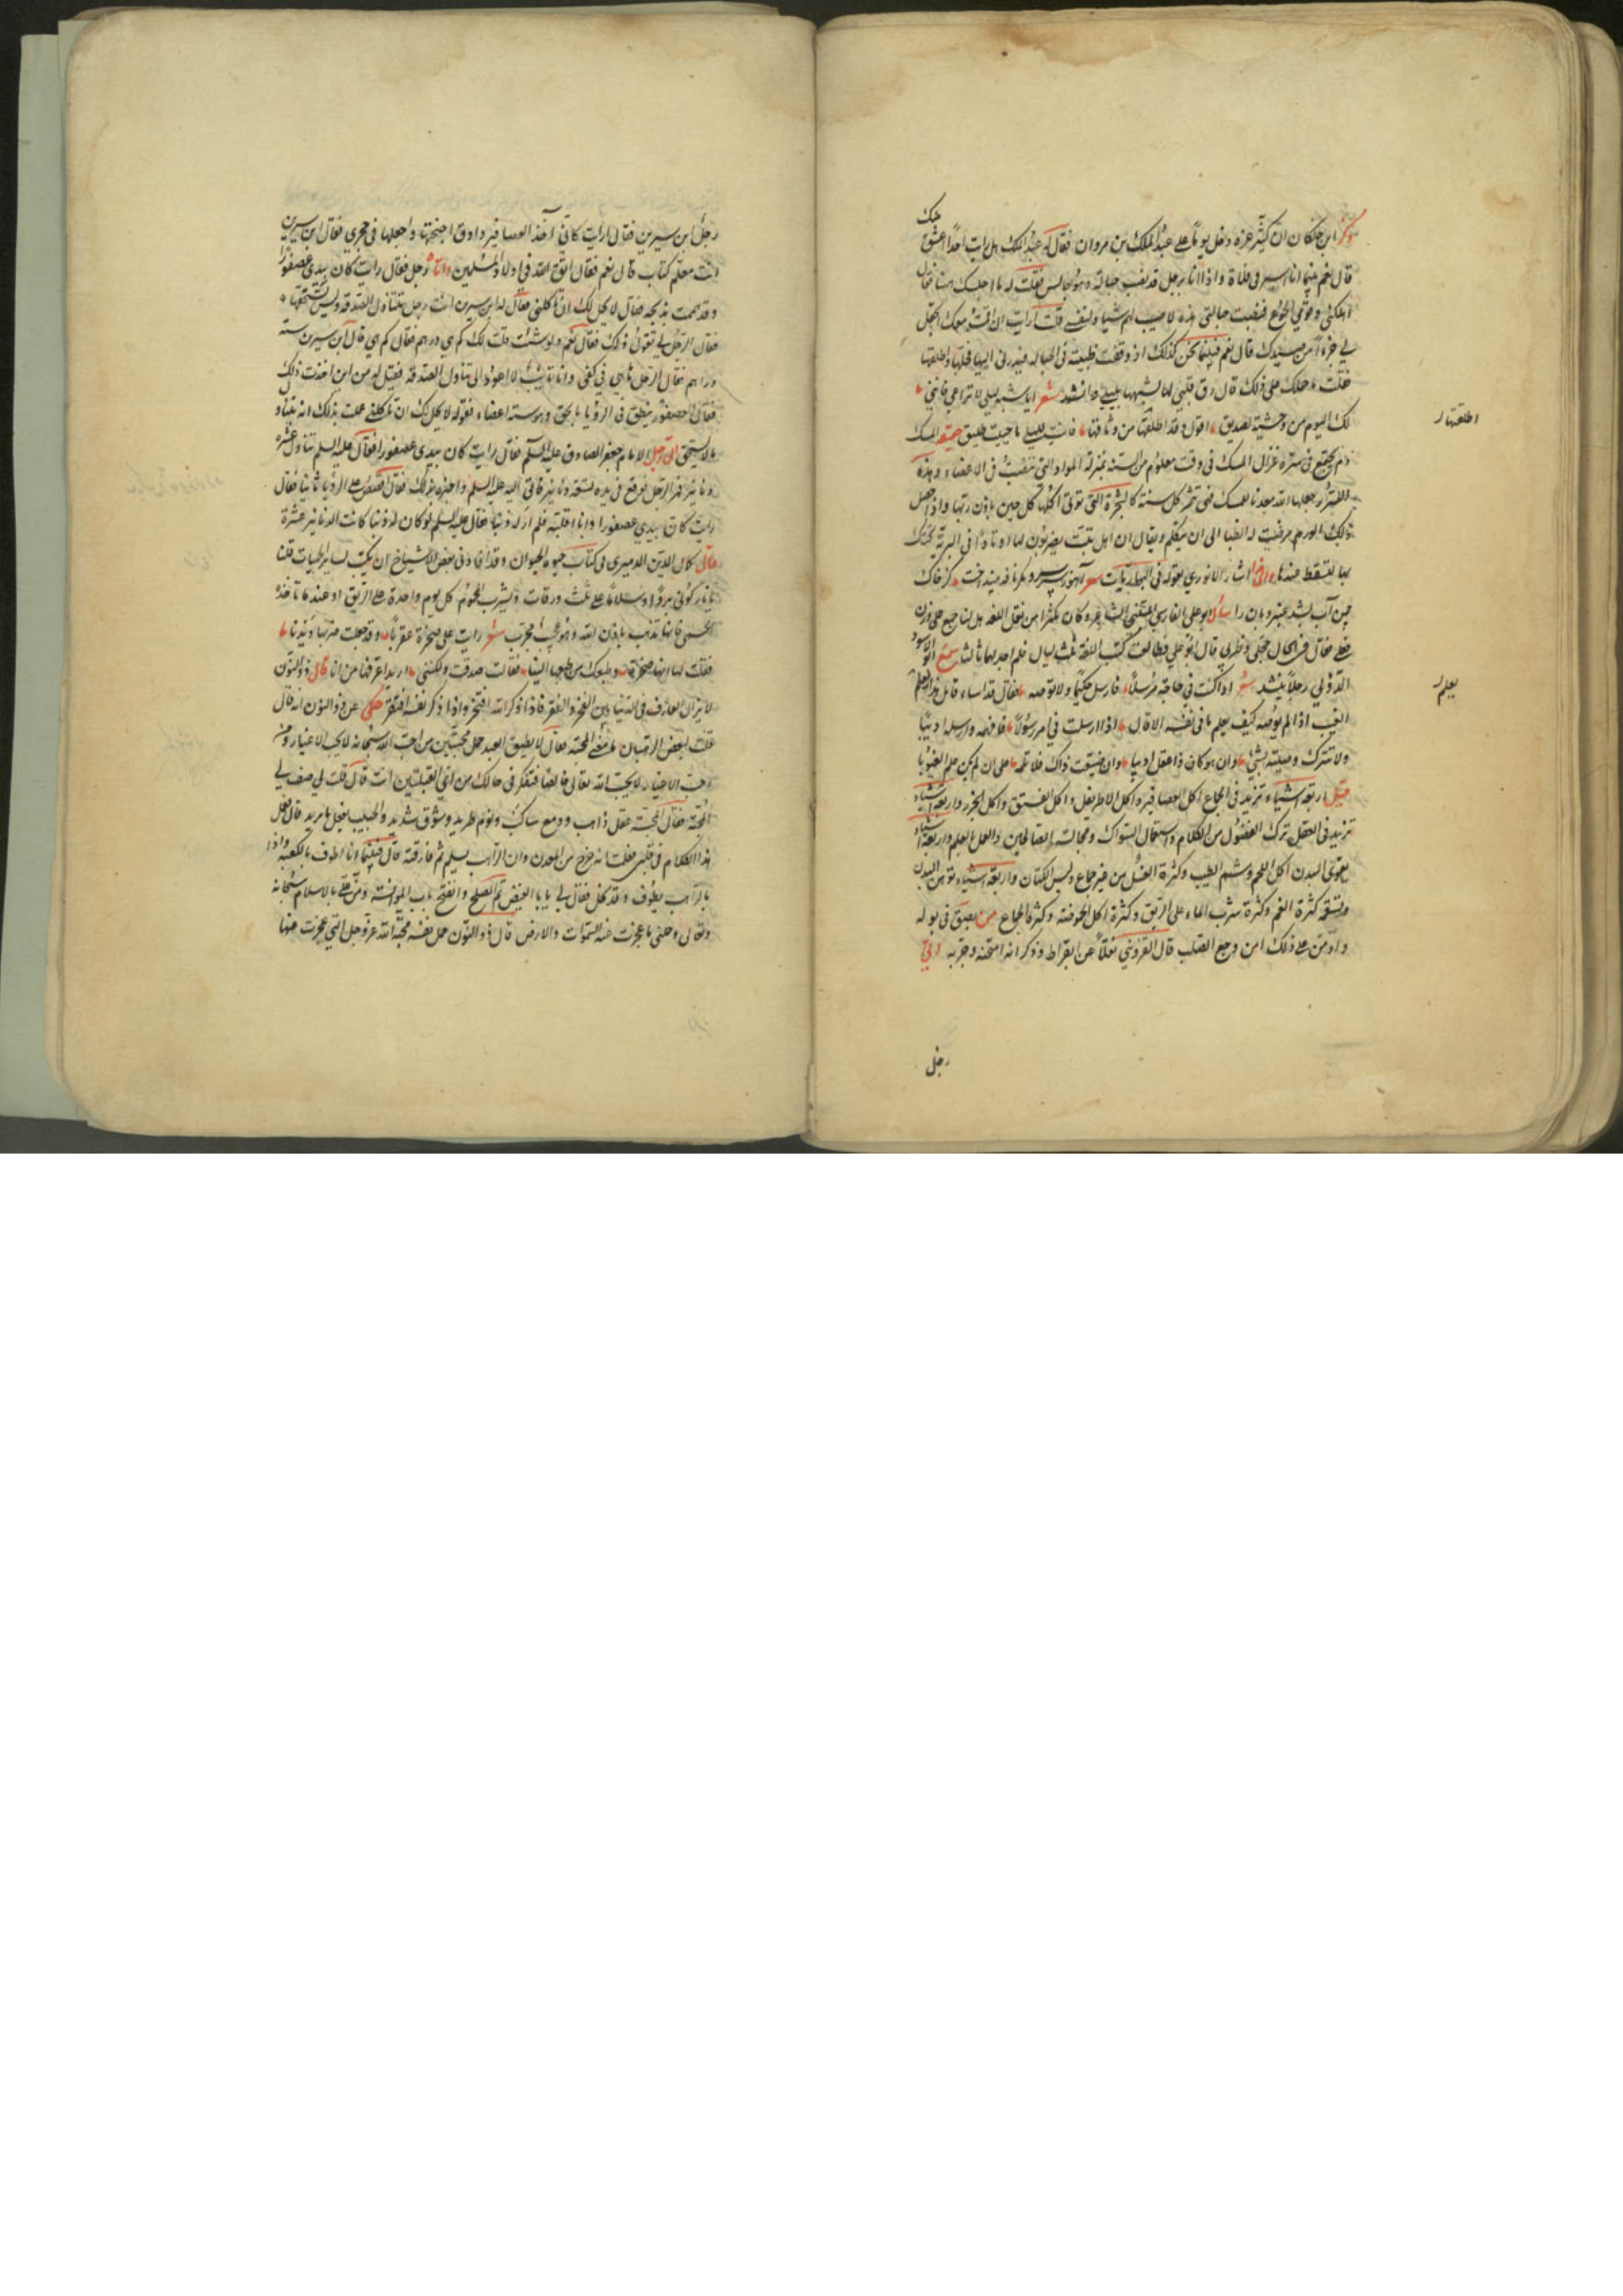 منك
وذكر ابن خلكان ان كثير عزة دخل يوما على عبد الملك بن مروان فقال له عبد الملك هل رايت احدا اعشق
قال نعم بينما انا اسير فى فلاة واذا انا برجل قد نصب حبالة وهو جالس فقلت له ما اجلسك ههنا فقال
اهلكنى وقومى الجوع فنصبت حبالتى هذه لاصيب لهم شيئا ولنفسى قلت ارايت ان اقمت معك اتجعل
لى جزءا من صيدك قال نعم فبينما نحن كذلك اذ وقعت ظبية فى الحبالة فبدرنى اليها فحلها واطلقها
فقلت ما حملك على ذلك قال رق قلبى لها لشبهها بليلى وانشد شعر ايا شبه ليلى لا تراعى فاننى
لك اليوم من وحشية لصديق اقول وقد اطلقتها من وثاقها فانت لليلى ما حييت طليق المسك
اطلقتها
دم يجتمع فى سرة غزال المسك فى وقت معلوم من السنة بمنزلة المواد التى تنصب الى الاعضاء وهذه
السرر جعلها الله معدنا للمسك فهى تثمر كل سنة كالشجرة التى تؤتى اكلها كل حين باذن ربها واذا حصل
ذلك الورم مرضت له الظبا الى ان يتكلم ويقال ان اهل تبت يضربون لها اوتادا فى البرية تحتك
بها ليسقط عندها اشار الانورى بقوله فى
سأل ابو على الفارسى المتنبى الشاعر وكان مكثرا من نقل اللغة هل لنا جمع على وزن
فعلى فقال فى الحال حجلى وظربى قال ابو على فطالعت كتب اللغة ثلث ليال فلم اجد لهما ثالثا سمع ابو الاسود
الدؤلى رجلا ينشد شعر اذا كنت فى حاجة مرسلا فارسل حكيما ولا توصه فقال قد اساء قائل هذا ايعلم
يعلم
الغيب اذا لم يوصه كيف يعلم ما فى نفسه الا قال اذا ارسلت فى امر رسولا فافهمه وارسله اديبا
ولا تترك وصيته بشئ وان هو كان ذا عقل اديبا وان ضيعت ذاك فلا تلمه على ان لم يكن علم الغيوبا
قيل اربعة اشياء تزيد فى الجماع اكل العصافير واكل الاطريفل واكل الفستق واكل الجزر واربعة اشياء
تزيد فى العقل ترك الفضول من الكلام واستعمال السواك ومجالسة الصالحين والعمل بالعلم واربعة اشياء
تقوى البدن اكل اللحم وشم الطيب وكثرة الغسل من غير جماع ولبس الكتان واربعة اشياء توهن البدن
وتسقمه كثرة الغم وكثرة شرب الماء على الريق وكثرة اكل الحموضة وكثرة الجماع من بصق فى بوله
وادمن على ذلك امن وجع الصلب قال القزوينى نقلا عن بقراط وذكر انه امتحنه وجربه اتى
رجل
رجل ابن سيرين فقال رايت كانى آخذ العصافير وادق اجنحتها واجعلها فى حجرى فقال ابن سيرين
انت معلم كتاب قال نعم فقال اتق الله فى اولاد المسلمين واتاه رجل فقال رايت كان بيدى عصفورا
وقد هممت بذبحه فقال لا يحل لك ان تاكلنى فقال له ابن سيرين انت رجل تتناول الصدقة وليس تستحقها
فقال الرجل لى تقول ذلك فقال نعم ولو شئت قلت لك كم هى درهم فقال كم هى قال ابن سيرين ستة
دراهم فقال الرجل ها هى فى كفى وانا تائب لا اعود الى تناول الصدقة فقيل له من اين اخذت ذلك
فقال العصفور ينطق فى الرؤيا بالحق وهو ستة اعضاء فقوله لا يحل لك ان تاكلنى علمت بذلك انه يتناول
ما لا يستحق اتى رجل الامام جعفر الصادق عليه السلام فقال رايت كان بيدى عصفورا فقال عليه السلم تنال عشرة
دنانير فمر الرجل فوقع فى يده تسعة دنانير فاتى اليه عليه السلم واخبره بذلك فقال اقصص على الرؤيا ثانيا فقال
رايت كان بيدى عصفورا وانا اقلبه فلم ار له ذنبا فقال عليه السلم لو كان له ذنب كانت الدنانير عشرة
قال كمال الدين الدميرى فى كتاب حيوة الحيوان وقد افادنى بعض الاشياخ ان يكتب لسائر الحميات قلنا
يا نار كونى بردا وسلاما على ثلث ورقات ويشرب المحموم كل يوم واحدة على الريق او عند ما تاخذه
الحمى فانها تذهب باذن الله وهو عجيب مجرب شعر رايت على صخرة عقربا وقد جعلت ضربها ديدنا
فقلت لها انها صخرة وطبعك من طبعها الينا فقالت صدقت ولكننى اريد اعرفها من انا قال ذو النون
لا يزال العارف فى الدنيا بين الفخر والفقر فاذا ذكر الله افتخر واذا ذكر نفسه افتقر حكى عن ذو النون انه قال
قلت لبعض الرهبان ما معنى المحبة فقال لا يطيق العبد حمل محبتين من احب الله سبحانه لا يحب الاغيار ومن
احب الاغيار لا يحب الله تعالى خالصا فتفكر فى حالك من اى القبيلتين انت قال قلت لى صف لى
المحبة فقال المحبة عقل ذاهب ودمع ساكب ونوم طريد وشوق شديد والحبيب يفعل ما يريد قال فعمل
هذا الكلام فى قلبى فعلمت انه خرج من المعدن وان الراهب مسلم ثم فارقته قال فبينما انا اطوف بالكعبة واذا
بالراهب يطوف وقد نحل فقال لى يا ابا الفيض تم الصلح وانفتح باب الموانسة ومن على بالاسلام سبحانه
وتعالى وحملنى ما عجزت عنه السموات والارض قال ذو النون حمل نفسه محبة الله عز وجل التى عجزت عنها